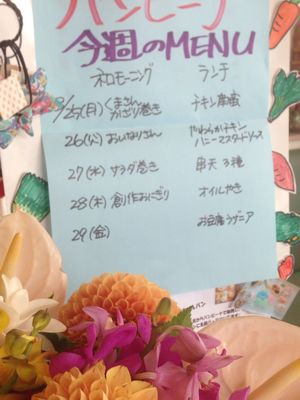 パンピーナ
今週のMENU
ネロモーニング ランチ
9/25(月) くまさん かざり巻き チキン南蛮
26(火) おいなりさん やわらかチキン ハニーマスタードソース
27(水) サラダ巻き 串天3種
28(木) 創作おにぎり オイルやき
29(金) お豆腐ラザニア
パン